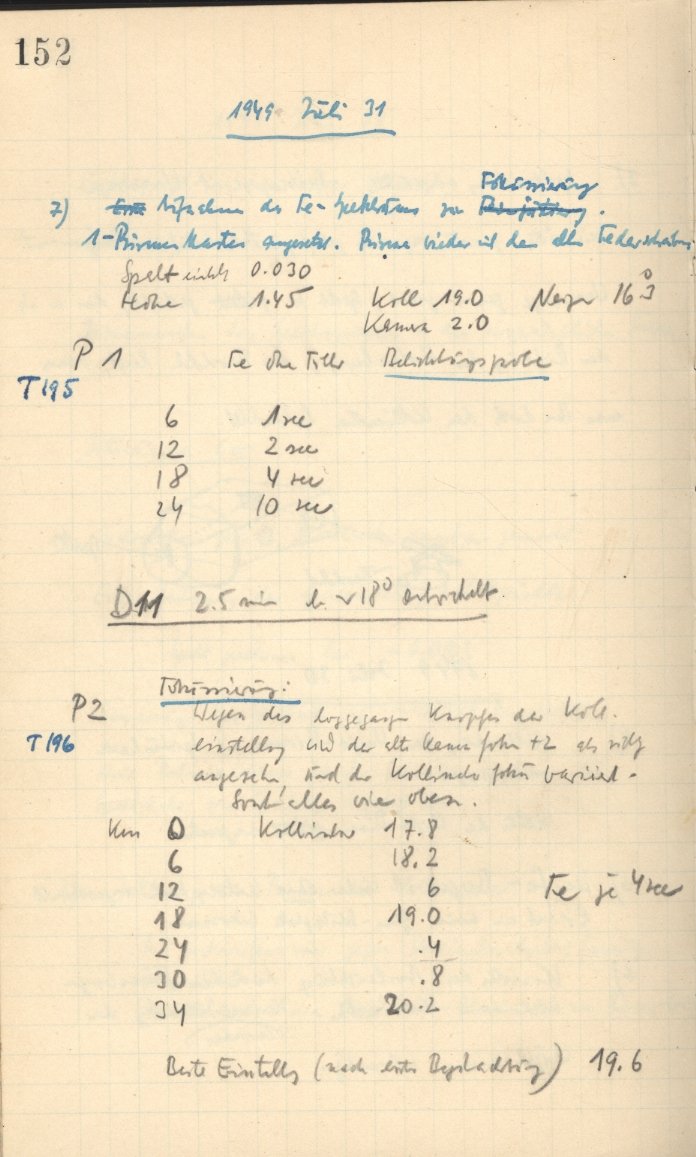 152
1949 Juli 31
Fokussierung
7) Aufnahme des Fe-Spektrums zur
1-Prismen Kasten angesetzt. Prisma wieder mit dem alten
Spalt 0.030
Höhe 1.45 Koll 19.0 Neigg 16°3
Kamera 2.0
P 1 Fe ohne Filter Belichtungsprobe
T195
6 1 sec
12 2 sec
18 4 sec
24 10 sec
D11 2.5 min b. ~18° entwickelt
Fokussierung:
P2 Wegen des Knopfes der Koll.
T196 einstellg wird der alte Kamera fokus +2 als richtig
angesehen und der Kollimator fokus variiert.
Sonst alles wie oben.
Km 0 Kollimator 17.8
6 18.2
12 6 Fe je 4 sec
18 19.0
24 .4
30 .8
34 20.2
Beste Einstellg (nach erster Begutachtung) 19.6